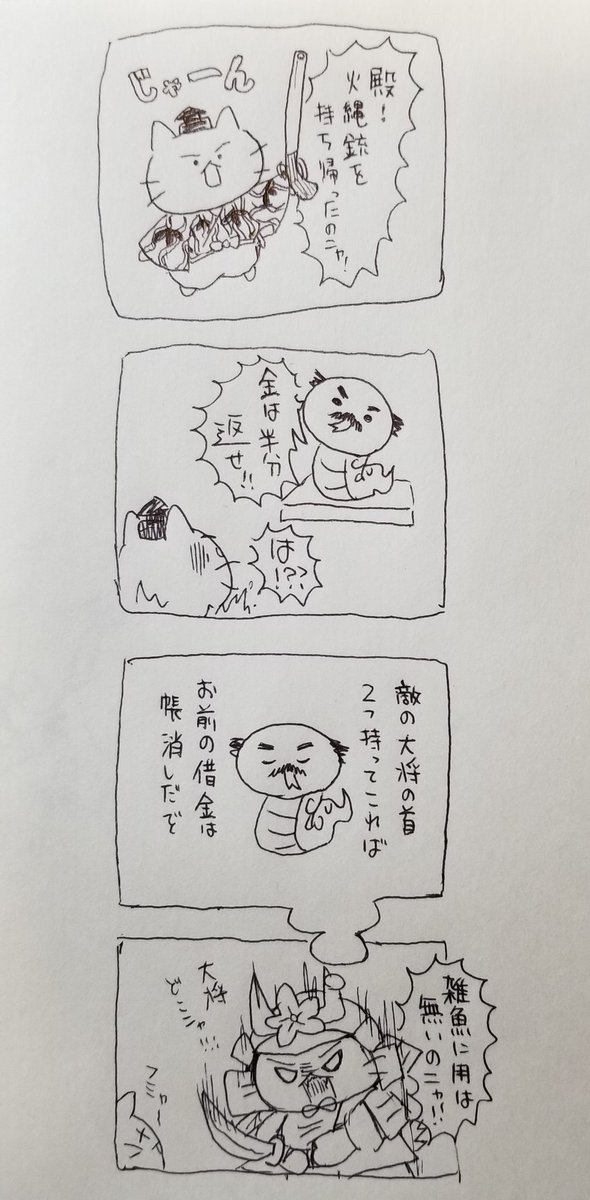 殿!
火縄銃を
持ち帰ったのニャ!
じゃーん
金は半分
返せ!!
は!??
敵の大将の首
2つ持ってこれば
お前の借金は
帳消しだで
雑魚に用は
無いのニャ!!
大将
どこニャ!!!
フミャー